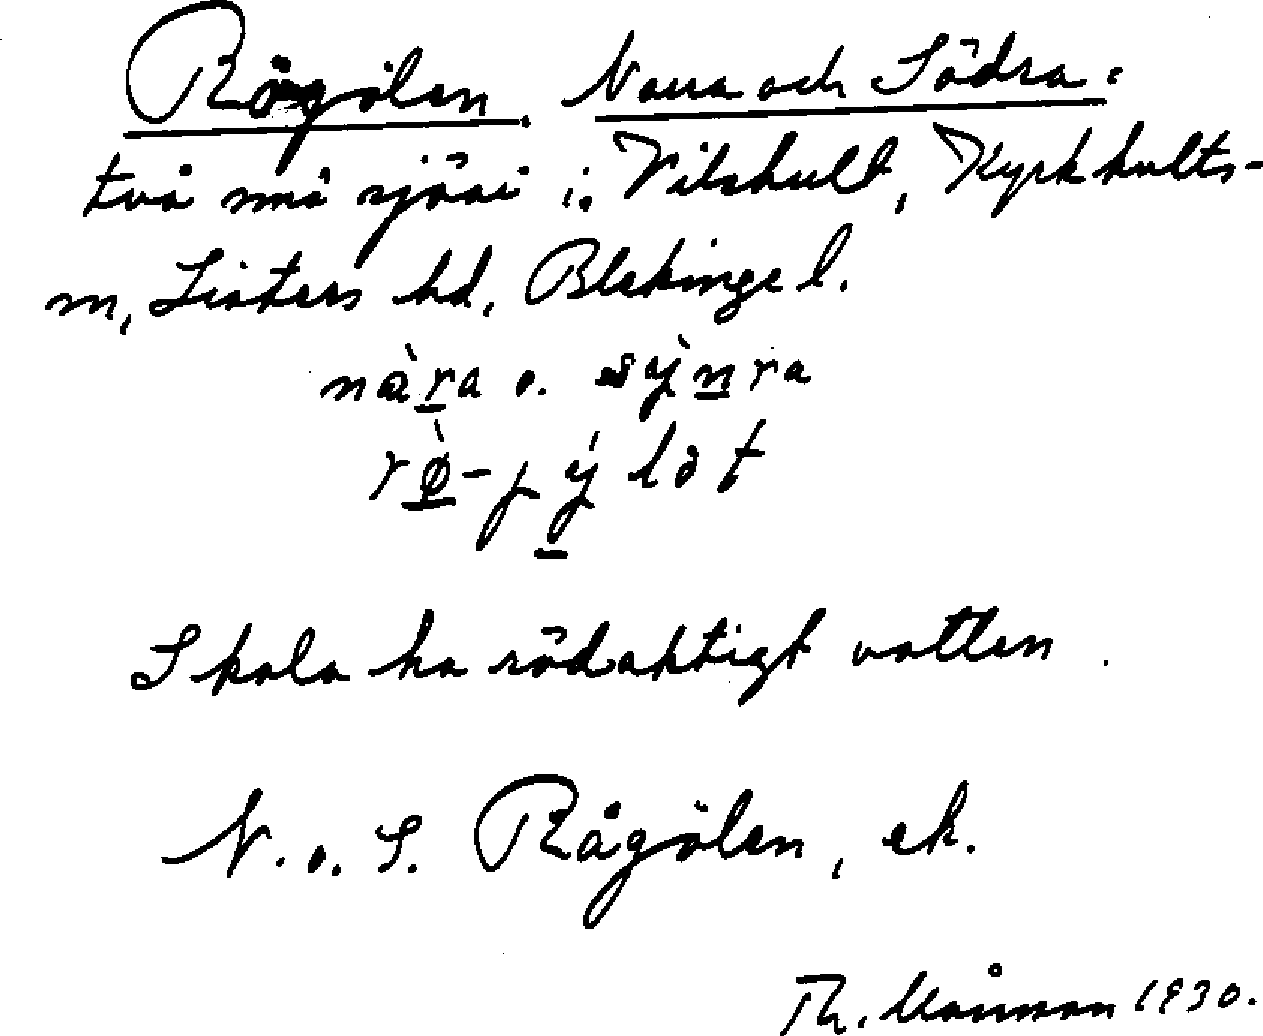 Rögölen, Norra och Södra.
två små sjöar i Vilshult, Kyrkhults-
sn, Listers hd, Blekinge l.
nàra o. sỳnra
rø̀-jýlət
Skola ha rödaktigt vatten.
N. o. S. Rågölen, ek.
Th. 1930.